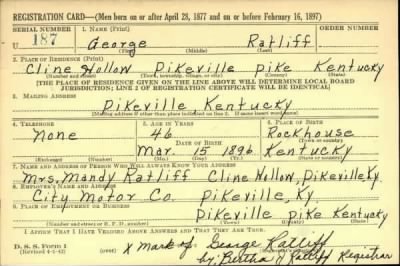 REGISTRATION CARD—(Men born on or after April 28, 1877 and on or before February 16, 1897)
SERIAL NUMBER 1. NAME (Print) ORDER NUMBER
U 187 George Ratliff
(First) (Middle) (Last)
2. PLACE OF RESIDENCE (Print)
Cline Hollow Pikeville pike Kentucky
(Number and street) (Town, township, village, or city) (County) (State)
[THE PLACE OF RESIDENCE GIVEN ON THE LINE ABOVE WILL DETERMINE LOCAL BOARD
JURISDICTION; LINE 2 OF REGISTRATION CERTIFICATE WILL BE IDENTICAL]
3. MAILING ADDRESS
Pikeville Kentucky
[Mailing address if other than place indicated on line 2. If same insert word same]
4. TELEPHONE 5. AGE IN YEARS 6. PLACE OF BIRTH
None 46 Rockhouse
DATE OF BIRTH (Town or county)
Mar. 15 1896 Kentucky
(Exchange) (Number) (Mo.) (Day) (Yr.) (State or country)
7. NAME AND ADDRESS OF PERSON WHO WILL ALWAYS KNOW YOUR ADDRESS
Mrs, Mandy Ratliff Cline Hollow, Pikeville Ky
8. EMPLOYER'S NAME AND ADDRESS
City Motor Co. Pikeville, Ky
9. PLACE OF EMPLOYMENT OR BUSINESS
Pikeville pike Kentucky
(Number and street or R. F. D. number) (Town) (County) (State)
I AFFIRM THAT I HAVE VERIFIED ABOVE ANSWERS AND THAT THEY ARE TRUE.
D. S. S. Form 1 x mark of George Ratliff
(Revised 4-1-42) by Bertha J Ratliff Registrar